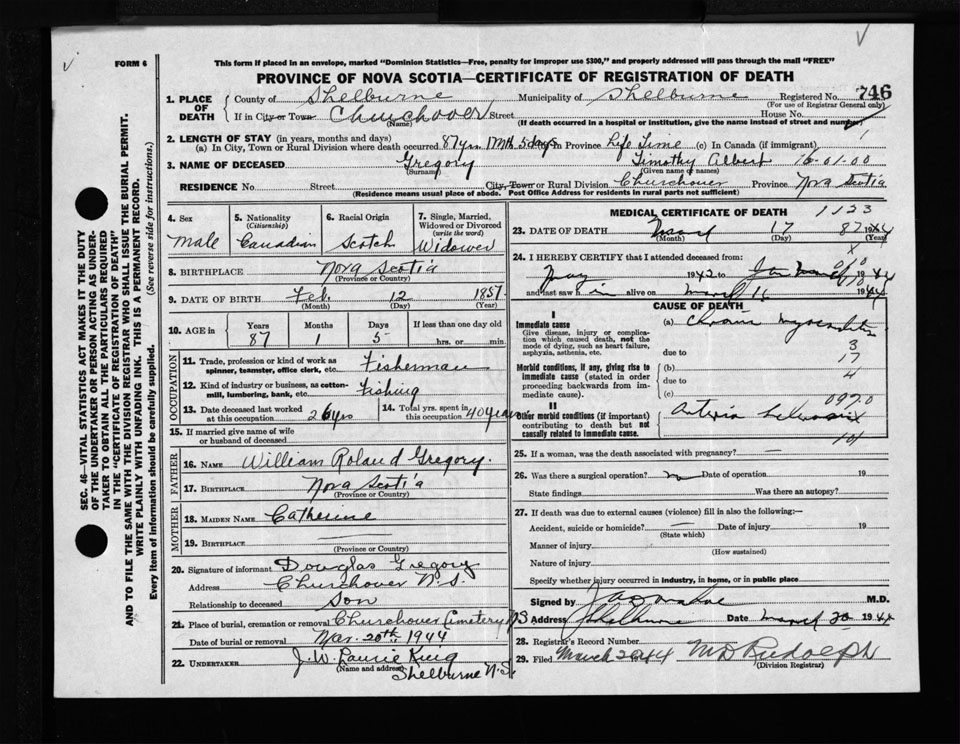 FORM 6
This form if placed in an envelope, marked "Dominion Statistics—Free, penalty for improper use $300," and properly addressed will pass through the mail "FREE"
PROVINCE OF NOVA SCOTIA—CERTIFICATE OF REGISTRATION OF DEATH
746
1. PLACE OF DEATH
County of Shelburne Municipality of Shelburne Registered No.
(For use of Registrar General only)
If in City or Town Churchover Street House No.
(Name) (If death occurred in a hospital or institution, give the name instead of street and number)
2. LENGTH OF STAY (in years, months and days)
(a) In City, Town or Rural Division where death occurred 87 yrs 1 Mth 5 days (b) In Province Life Time (c) In Canada (if immigrant)
3. NAME OF DECEASED Gregory Timothy Albert 16-01-00
(Surname) (Given name or names)
RESIDENCE No. Street City, Town or Rural Division Churchover Province Nova Scotia
(Residence means usual place of abode. Post Office Address for residents in rural parts not sufficient)
4. Sex
Male
5. Nationality (Citizenship)
Canadian
6. Racial Origin
Scotch
7. Single, Married, Widowed or Divorced (write the word)
Widower
8. BIRTHPLACE Nova Scotia
(Province or Country)
9. DATE OF BIRTH Feb. 12 1857
(Month) (Day) (Year)
10. AGE in Years Months Days If less than one day old
87 1 5 hrs. or min.
OCCUPATION
11. Trade, profession or kind of work as spinner, teamster, office clerk, etc. Fisherman
12. Kind of industry or business, as cotton-mill, lumbering, bank, etc. Fishing
13. Date deceased last worked at this occupation 26 yrs
14. Total yrs. spent in this occupation 40 years
15. If married give name of wife or husband of deceased
FATHER
16. NAME William Roland Gregory.
17. BIRTHPLACE Nova Scotia
(Province or Country)
MOTHER
18. MAIDEN NAME Catherine
19. BIRTHPLACE
(Province or Country)
20. Signature of informant Douglas Gregory
Address Churchover N.S.
Relationship to deceased Son
21. Place of burial, cremation or removal Churchover Cemetery N.S.
Date of burial or removal Mar. 20th 1944
22. UNDERTAKER J. W. Laurie King
(Name and address)
Shelburne N.S.
MEDICAL CERTIFICATE OF DEATH 1123
23. DATE OF DEATH March 17 87 1944
(Month) (Day) (Year)
24. I HEREBY CERTIFY that I attended deceased from:
May 1942 to March 1944
and last saw h im alive on March 16 1944
CAUSE OF DEATH
I
Immediate cause
Give disease, injury or complication which caused death, not the mode of dying, such as heart failure, asphyxia, asthenia, etc.
(a) Chronic Myocarditis
due to
Morbid conditions, if any, giving rise to immediate cause (stated in order proceeding backwards from immediate).
(b)
due to
(c)
3
17
4
0970
II
Other morbid conditions (if important) contributing to death but not causally related to immediate cause.
101
25. If a woman, was the death associated with pregnancy? —
26. Was there a surgical operation? Date of operation 19
State findings Was there an autopsy?
27. If death was due to external causes (violence) fill in also the following:—
Accident, suicide or homicide? — Date of injury 19
(State which)
Manner of injury
(How sustained)
Nature of injury
Specify whether injury occurred in industry, in home, or in public place
Signed by M.D.
Address Shelburne Date March 20 1944
28. Registrar's Record Number
29. Filed March 20 44 M D Rudolph
(Division Registrar)
SEC. 46—VITAL STATISTICS ACT MAKES IT THE DUTY
OF THE UNDERTAKER OR PERSON ACTING AS UNDER-
TAKER TO OBTAIN ALL THE PARTICULARS REQUIRED
IN THE "CERTIFICATE OF REGISTRATION OF DEATH"
AND TO FILE THE SAME WITH THE DIVISION REGISTRAR WHO SHALL ISSUE THE BURIAL PERMIT.
WRITE PLAINLY WITH UNFADING INK. THIS IS A PERMANENT RECORD.
Every item of information should be carefully supplied. (See reverse side for instructions.)